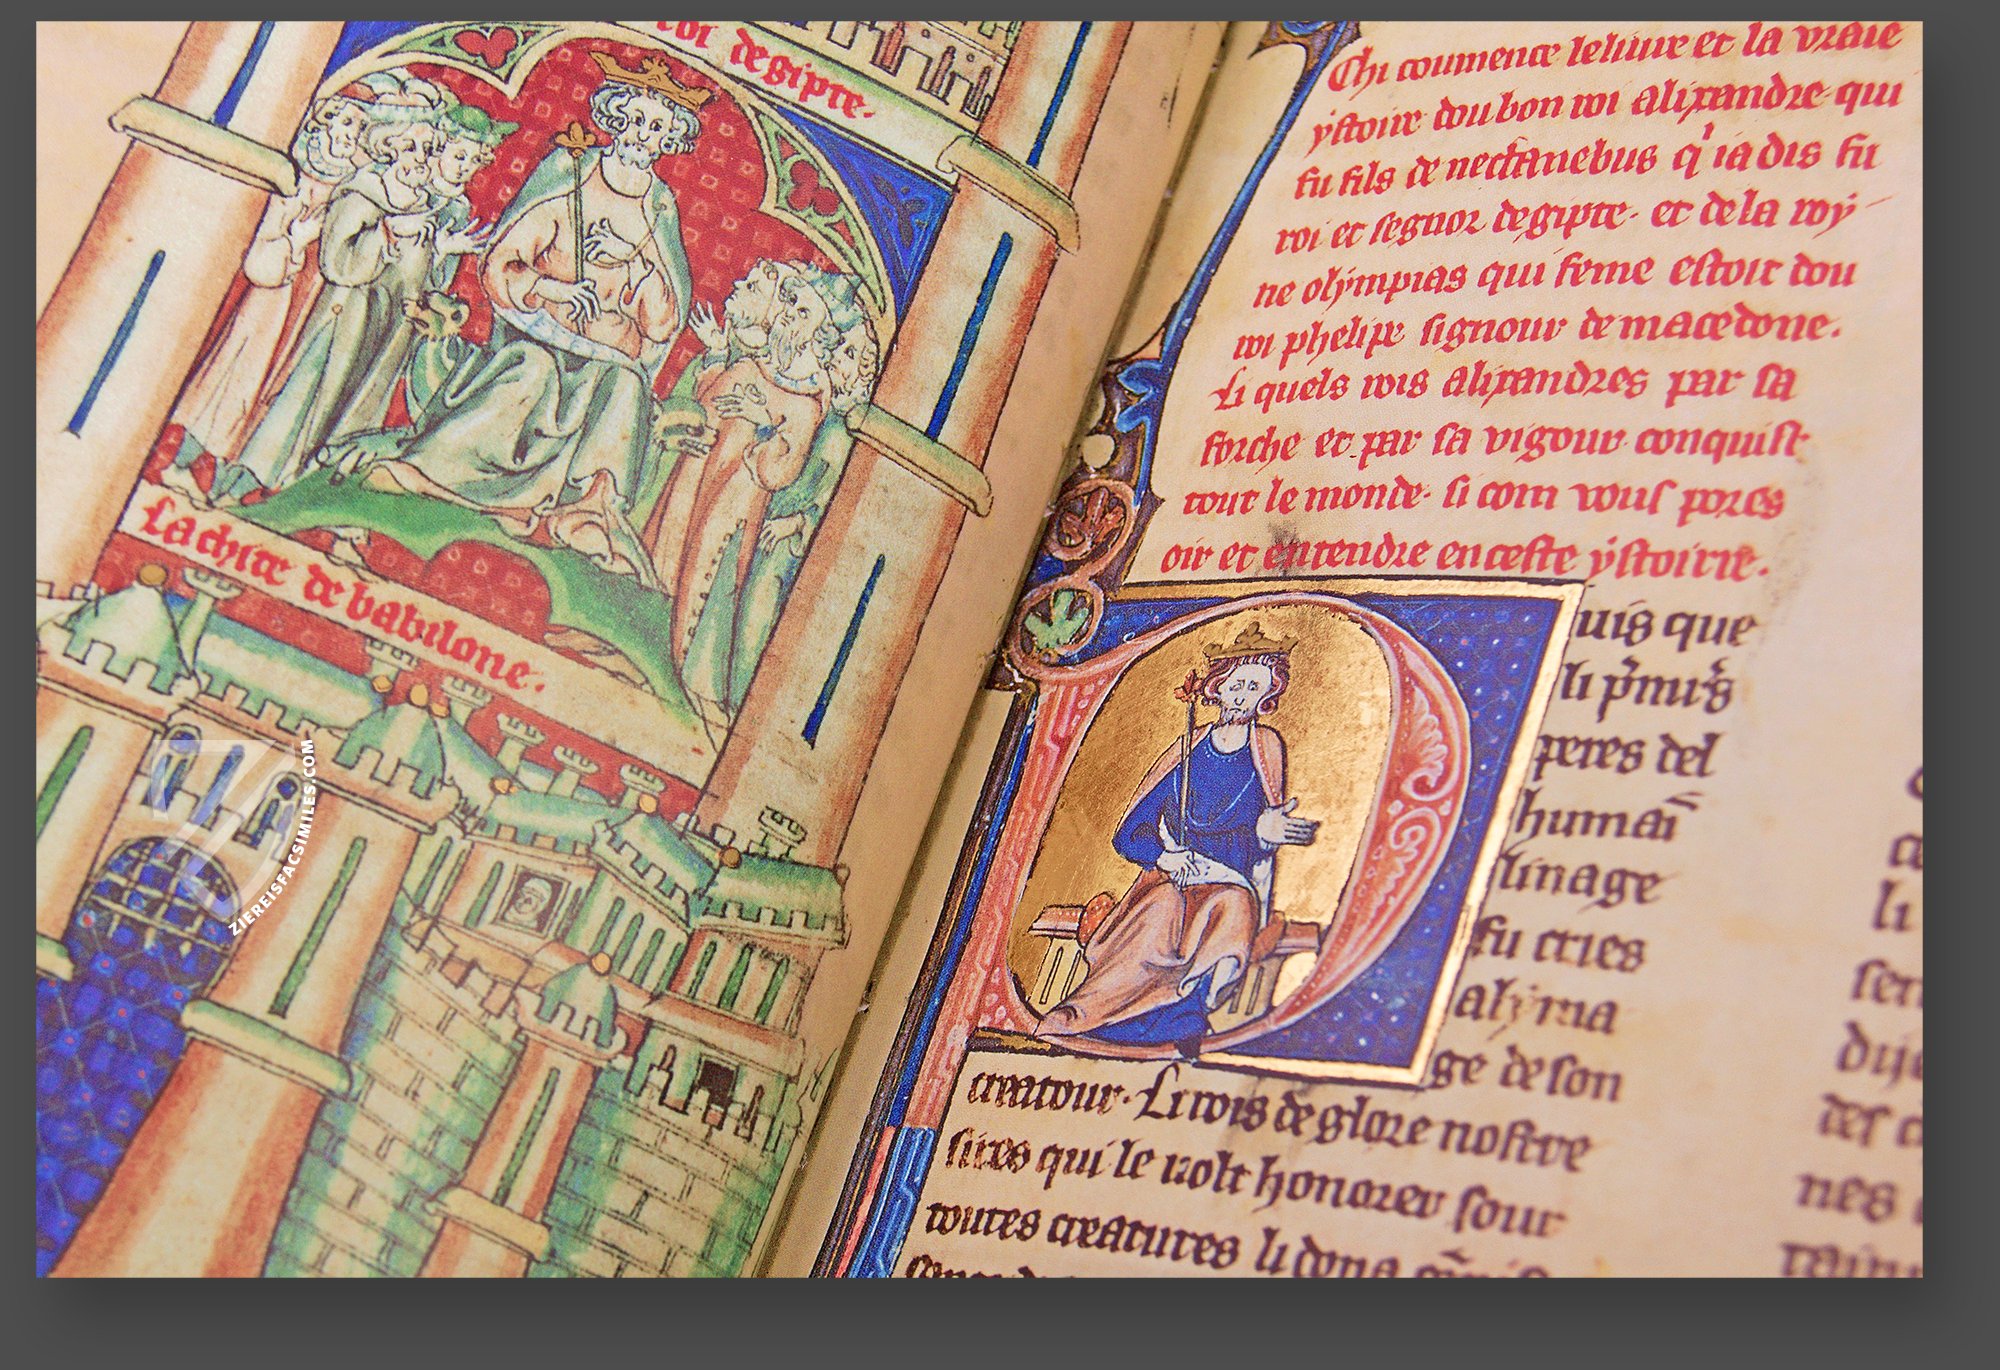 roi degipte.
La chite de babilone.
Chi coumence le liure et la vraie
ystoire dou bon roi alixandre qui
fu fils de nectanebus q' iadis fu
roi et segnor degipte. et de la roy
ne olympias qui feme estoit dou
roi phelipe signour de macedone.
Li quels rois alixandres par sa
forche et par sa vigour conquist
tout le monde. si com vous pores
oir et entendre en ceste ystoire.
Puis que
li p̄mi's
peres del
humaī
linage
fu cries
alyma
ge de son
creatour. Li rois de glore nostre
sires qui le volt honorer sour
toutes creatures li dona
li
nes
ZIEREISFACSIMILES.COM